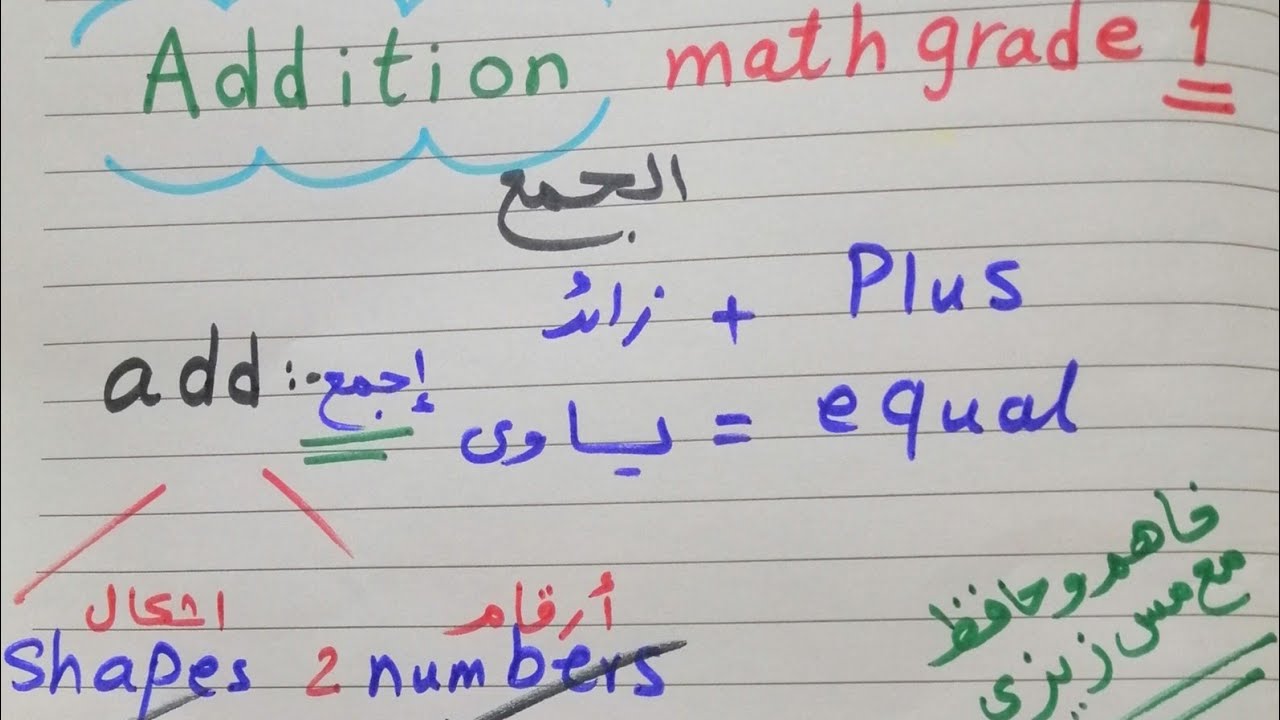 Addition math grade 1
الجمع
زائد + Plus
add :- إجمع
يساوى = equal
اشكال أرقام
Shapes 2 numbers
فاهم وحافظ
مع مس زيزى